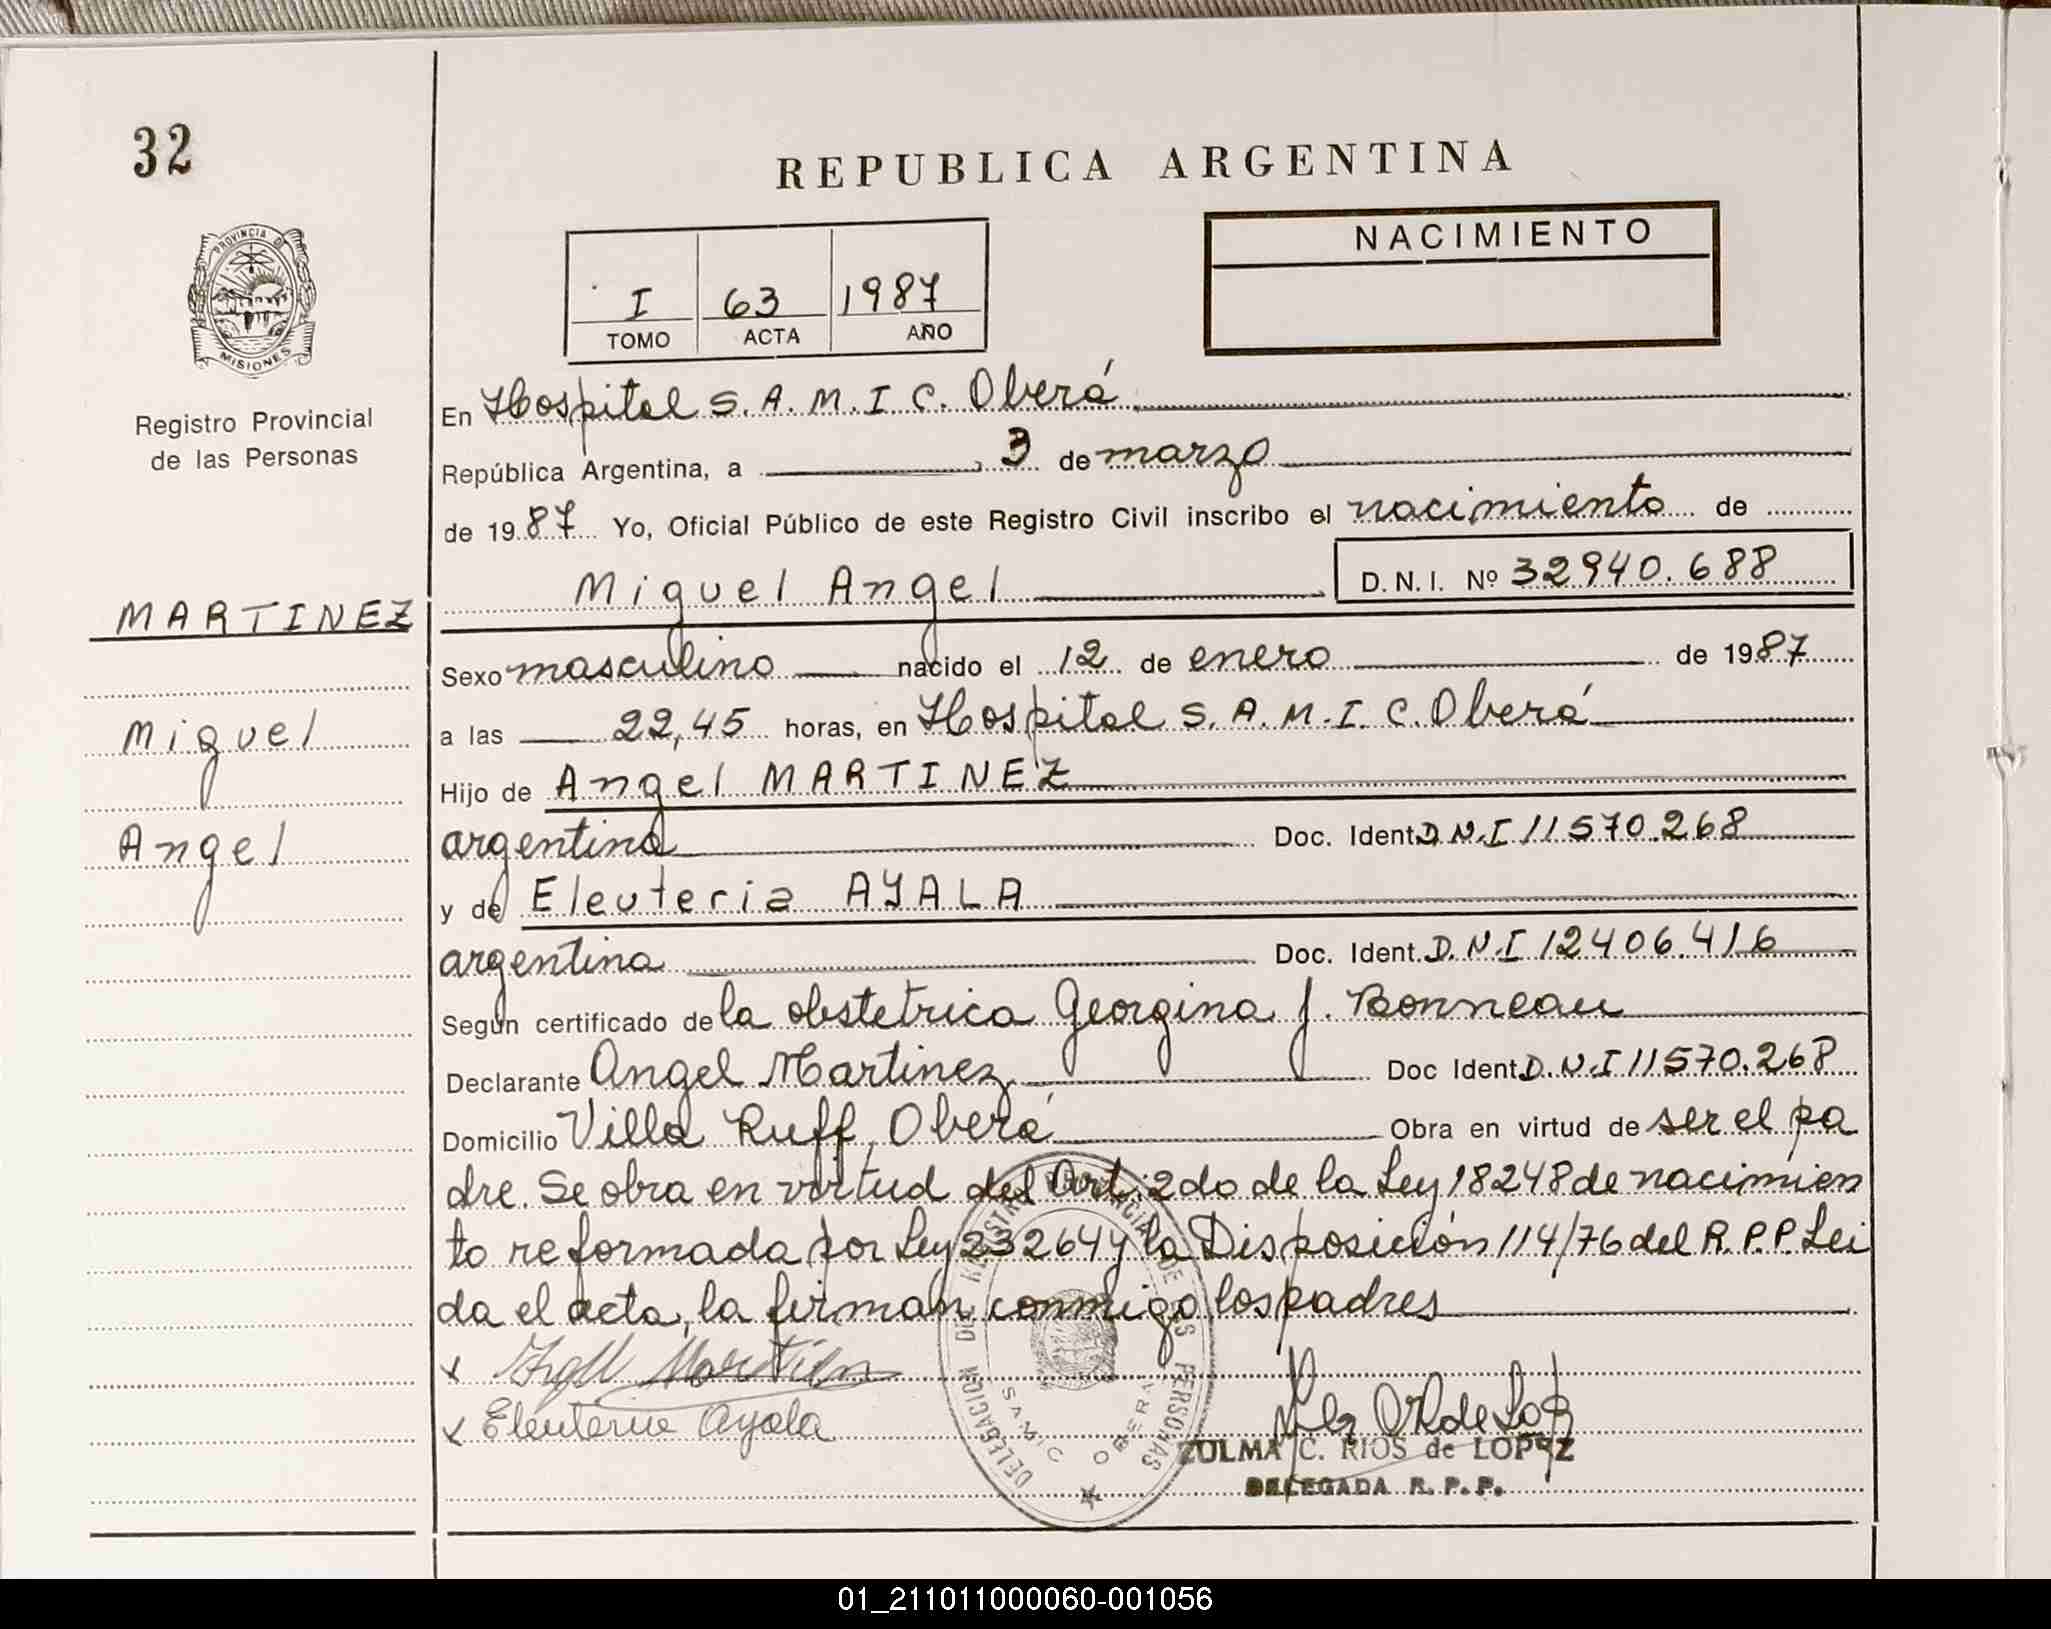 32
REPUBLICA ARGENTINA
PROVINCIA DE
MISIONES
Registro Provincial
de las Personas
I 63 1987
TOMO ACTA AÑO
NACIMIENTO
En Hospital S.A.M.I C. Oberá
República Argentina, a 3 de marzo
de 1987 Yo, Oficial Público de este Registro Civil inscribo el nacimiento de
Miguel Angel D.N.I. Nº 32940.688
MARTINEZ
Miguel
Angel
Sexo masculino nacido el 12 de enero de 1987
a las 22,45 horas, en Hospital S.A.M.I.C. Oberá
Hijo de Angel MARTINEZ
argentino Doc. Ident. D.N.I 11570.268
y de Eleuteria AYALA
argentina Doc. Ident. D.N.I 12406.416
Según certificado de la obstetrica Georgina J. Bonneau
Declarante Angel Martinez Doc Ident. D.N.I 11570.268
Domicilio Villa Ruff, Oberá Obra en virtud de ser el pa
dre. Se obra en virtud del Art. 2do de la Ley 18248 de nacimien
to reformada por Ley 23264 y la Disposición 114/76 del R.P.P. Lei
da el acta, la firman conmigo los padres
x Angel Martinez
x Eleuteria Ayala
DELEGACION DEL REGISTRO PROVINCIAL DE LAS PERSONAS
SAMIC OBERA
ZULMA C. RIOS de LOPEZ
DELEGADA R.P.P.
01_211011000060-001056